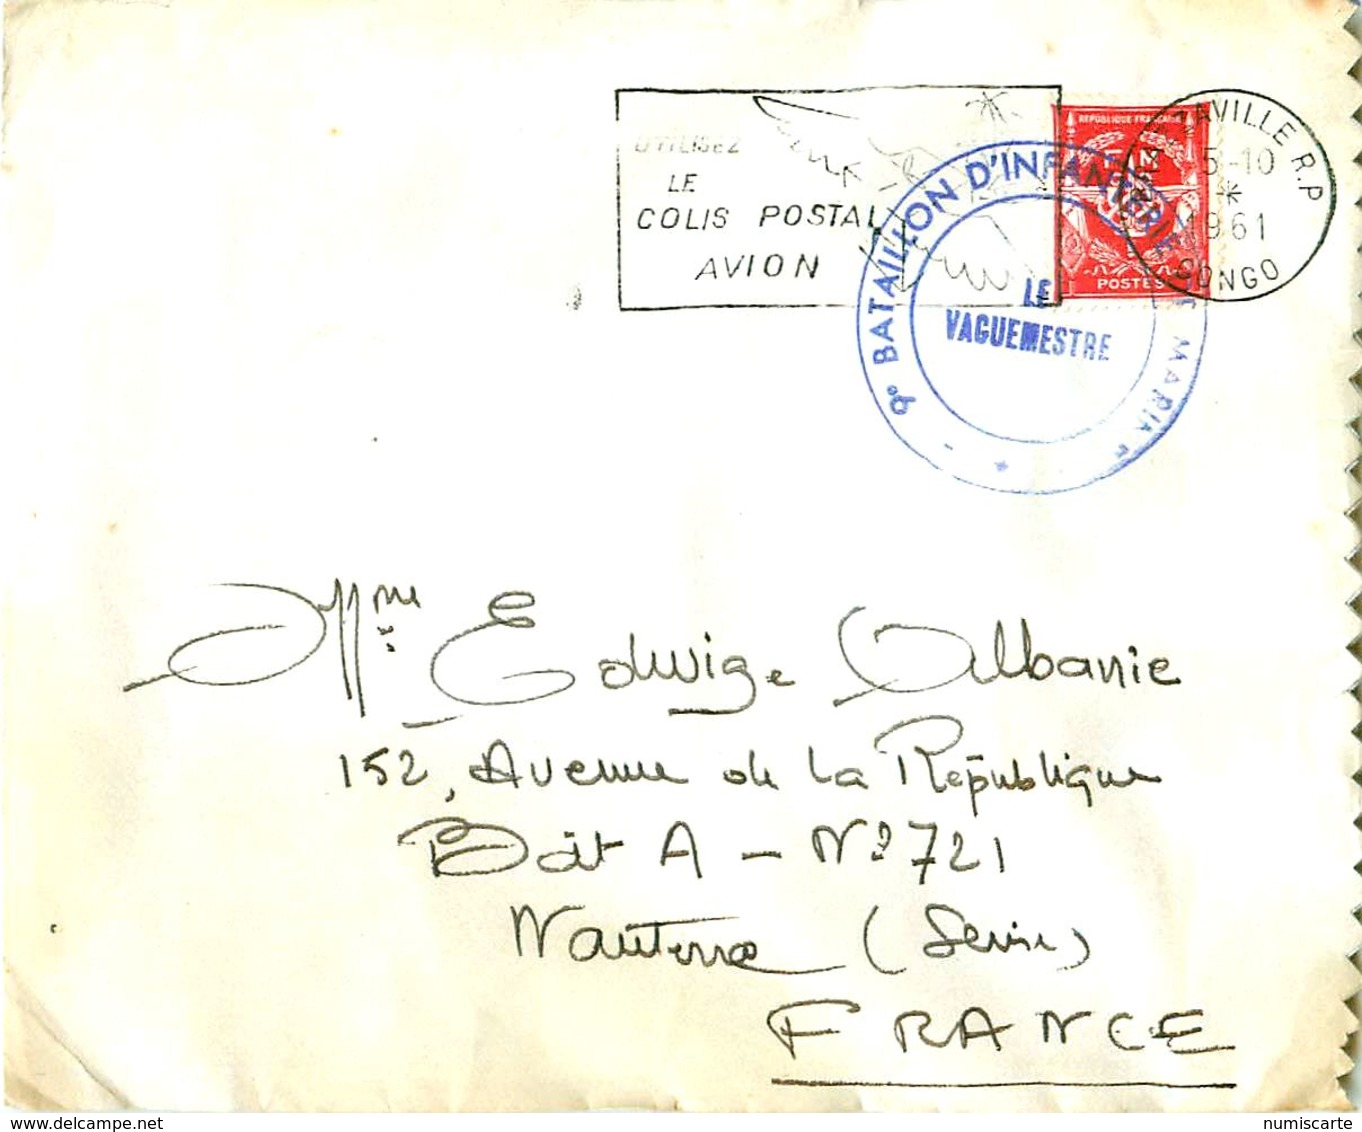 UTILISEZ
LE
COLIS POSTAL
AVION
REPUBLIQUE FRANCAISE
F M
POSTES
BRAZZAVILLE R.P
5-10
*
1961
CONGO
9e BATAILLON D'INFANTERIE
LE
VAGUEMESTRE
Mme Edwige Albanie
152, Avenue de la République
Bât A - N° 721
Nanterre (Seine)
FRANCE
www.delcampe.net
numiscarte